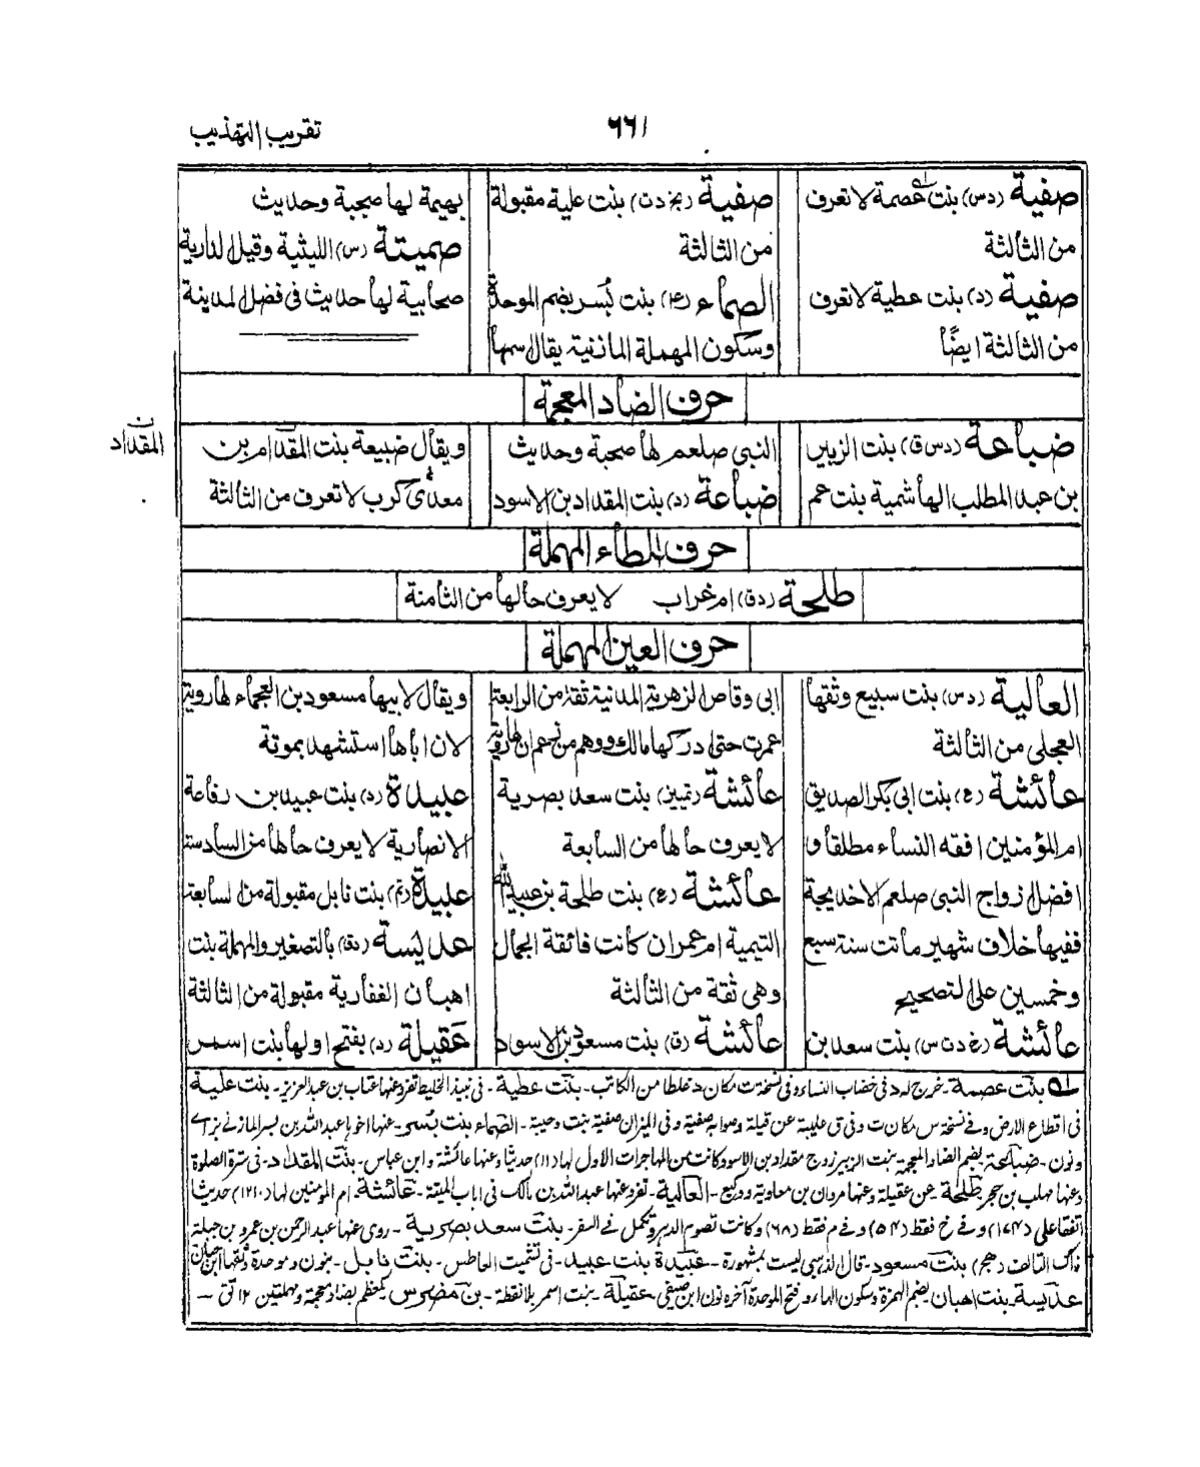 تقريب التهذيب
٦٦١
صفية (دس) بنت عصمة لا تعرف
من الثالثة
صفية (د) بنت عطية لا تعرف
من الثالثة ايضًا
صفية (بخ دت) بنت علية مقبولة
من الثالثة
الصماء (٤) بنت بُسر بضم الموحدة
وسكون المهملة المازنية يقال اسمها
بهيمة لها صحبة وحديث
صميتة (س) الليثية وقيل الدارية
صحابية لها حديث فى فضل المدينة
حرف الضاد المعجمة
ضباعة (دس ق) بنت الزبير
بن عبد المطلب الهاشمية بنت عم
النبي صلعم لها صحبة وحديث
ضباعة (د) بنت المقداد بن الاسود
ويقال ضبيعة بنت المقدام بن
معدى كرب لا تعرف من الثالثة
ن
المقداد
حرف الطاء المهملة
طلحة (دق) ام غراب لا يعرف حالها من الثامنة
حرف العين المهملة
العالية (دس) بنت سبيع وثقها
العجلى من الثالثة
عائشة (ع) بنت ابى بكر الصديق
ام المؤمنين افقه النساء مطلقا و
افضل ازواج النبي صلعم الا خديجة
ففيها خلاف شهير ماتت سنة سبع
وخمسين على الصحيح
عائشة (خ دت س) بنت سعد بن
ابى وقاص الزهرية المدنية ثقة من الرابعة
عمرت حتى ادركها مالك ووهم من زعم ان لها رؤية
عائشة (تمييز) بنت سعد بصرية
لا يعرف حالها من السابعة
عائشة (ع) بنت طلحة بن عبيد الله
التيمية ام عمران كانت فائقة الجمال
وهى ثقة من الثالثة
عائشة (ق) بنت مسعود بن الاسود
ويقال لابيها مسعود بن العجماء لها رؤية
لان اباها استشهد بموتة
عبيدة (د) بنت عبيد بن رفاعة
الانصارية لا يعرف حالها من السادسة
عبيدة (تم) بنت نابل مقبولة من السابعة
عديسة (تق) بالتصغير والمهملة بنت
اهبان الغفارية مقبولة من الثالثة
عَقيلة (د) بفتح اولها بنت اسمر
بنت عصمة - خرج له د فى خضاب النساء وفى نسخة ت مكان د غلطا من الكاتب - بنت عطية - فى نبيذ الخليط تفرد عنها عتاب بن عبد العزيز - بنت علية
فى اقطاع الارض وفى نسخة س مكان ت وفى ق عليبة عن قيلة وصوابه صفية وفى الميزان صفية بنت دحيبة - الصماء بنت بُسر - عنها اخوها عبد الله بن بسر المازنى بزاى
ونون - ضباعة بضم الضاد المعجمة بنت الزبير زوج مقداد بن الاسود كانت من المهاجرات الاول لها (١١) حديثا وعنها عائشة وابن عباس - بنت المقداد - فى سترة الصلوة
وعنها مهلب بن حجر طلحة عن عقيلة وعنها مروان بن معاوية ووكيع - العالية - تفرد عنها عبد الله بن مالك فى اهاب الميتة - عائشة - ام المؤمنين لها (٢٢١٠) حديث
اتفقا على (١٧٤) وفى خ فقط (٥٤) وفى م فقط (٦٨) وكانت تصوم الدهر وتكمل فى السفر - بنت سعد بصرية - روى عنها عبد الرحمن بن عمرو بن جبلة
ذاك التالف (هجم) بنت مسعود - قال الذهبى ليست بمشهورة - عبيدة بنت عبيد - فى تشميت العاطس - بنت نابل - بنون وموحدة وثقها ابن حبان
عديسة - بنت اهبان بضم الهمزة وسكون الهاء وفتح الموحدة آخره نون ابن صيفى - عقيلة - بنت اسمر بلا نقطة - بن مضرس كيعظم بضاد معجمة ومهملتين ١٢ تق -